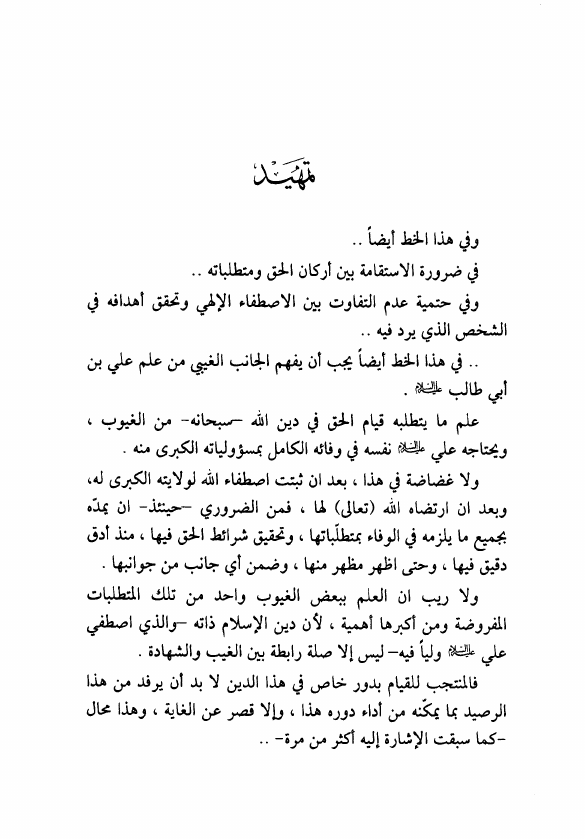 تمهيد
وفي هذا الخط أيضاً ..
في ضرورة الاستقامة بين أركان الحق ومتطلباته ..
وفي حتمية عدم التفاوت بين الاصطفاء الإلهي وتحقق أهدافه في
الشخص الذي يرد فيه ..
.. في هذا الخط أيضاً يجب أن يفهم الجانب الغيبي من علم علي بن
أبي طالب عليه السلام .
علم ما يتطلبه قيام الحق في دين الله –سبحانه- من الغيوب ،
ويحتاجه علي عليه السلام نفسه في وفائه الكامل بمسؤولياته الكبرى منه .
ولا غضاضة في هذا ، بعد ان ثبتت اصطفاء الله لولايته الكبرى له،
وبعد ان ارتضاه الله (تعالى) لها ، فمن الضروري –حينئذ- ان يمدّه
بجميع ما يلزمه في الوفاء بمتطلّباتها ، وتحقيق شرائط الحق فيها ، منذ أدق
دقيق فيها ، وحتى اظهر مظهر منها ، وضمن أي جانب من جوانبها .
ولا ريب ان العلم ببعض الغيوب واحد من تلك المتطلبات
المفروضة ومن أكبرها أهمية ، لأن دين الإسلام ذاته –والذي اصطفي
علي عليه السلام ولياً فيه– ليس إلا صلة رابطة بين الغيب والشهادة .
فالمنتجب للقيام بدور خاص في هذا الدين لا بد أن يرفد من هذا
الرصيد بما يمكّنه من أداء دوره هذا ، وإلا قصر عن الغاية ، وهذا محال
-كما سبقت الإشارة إليه أكثر من مرة- ..